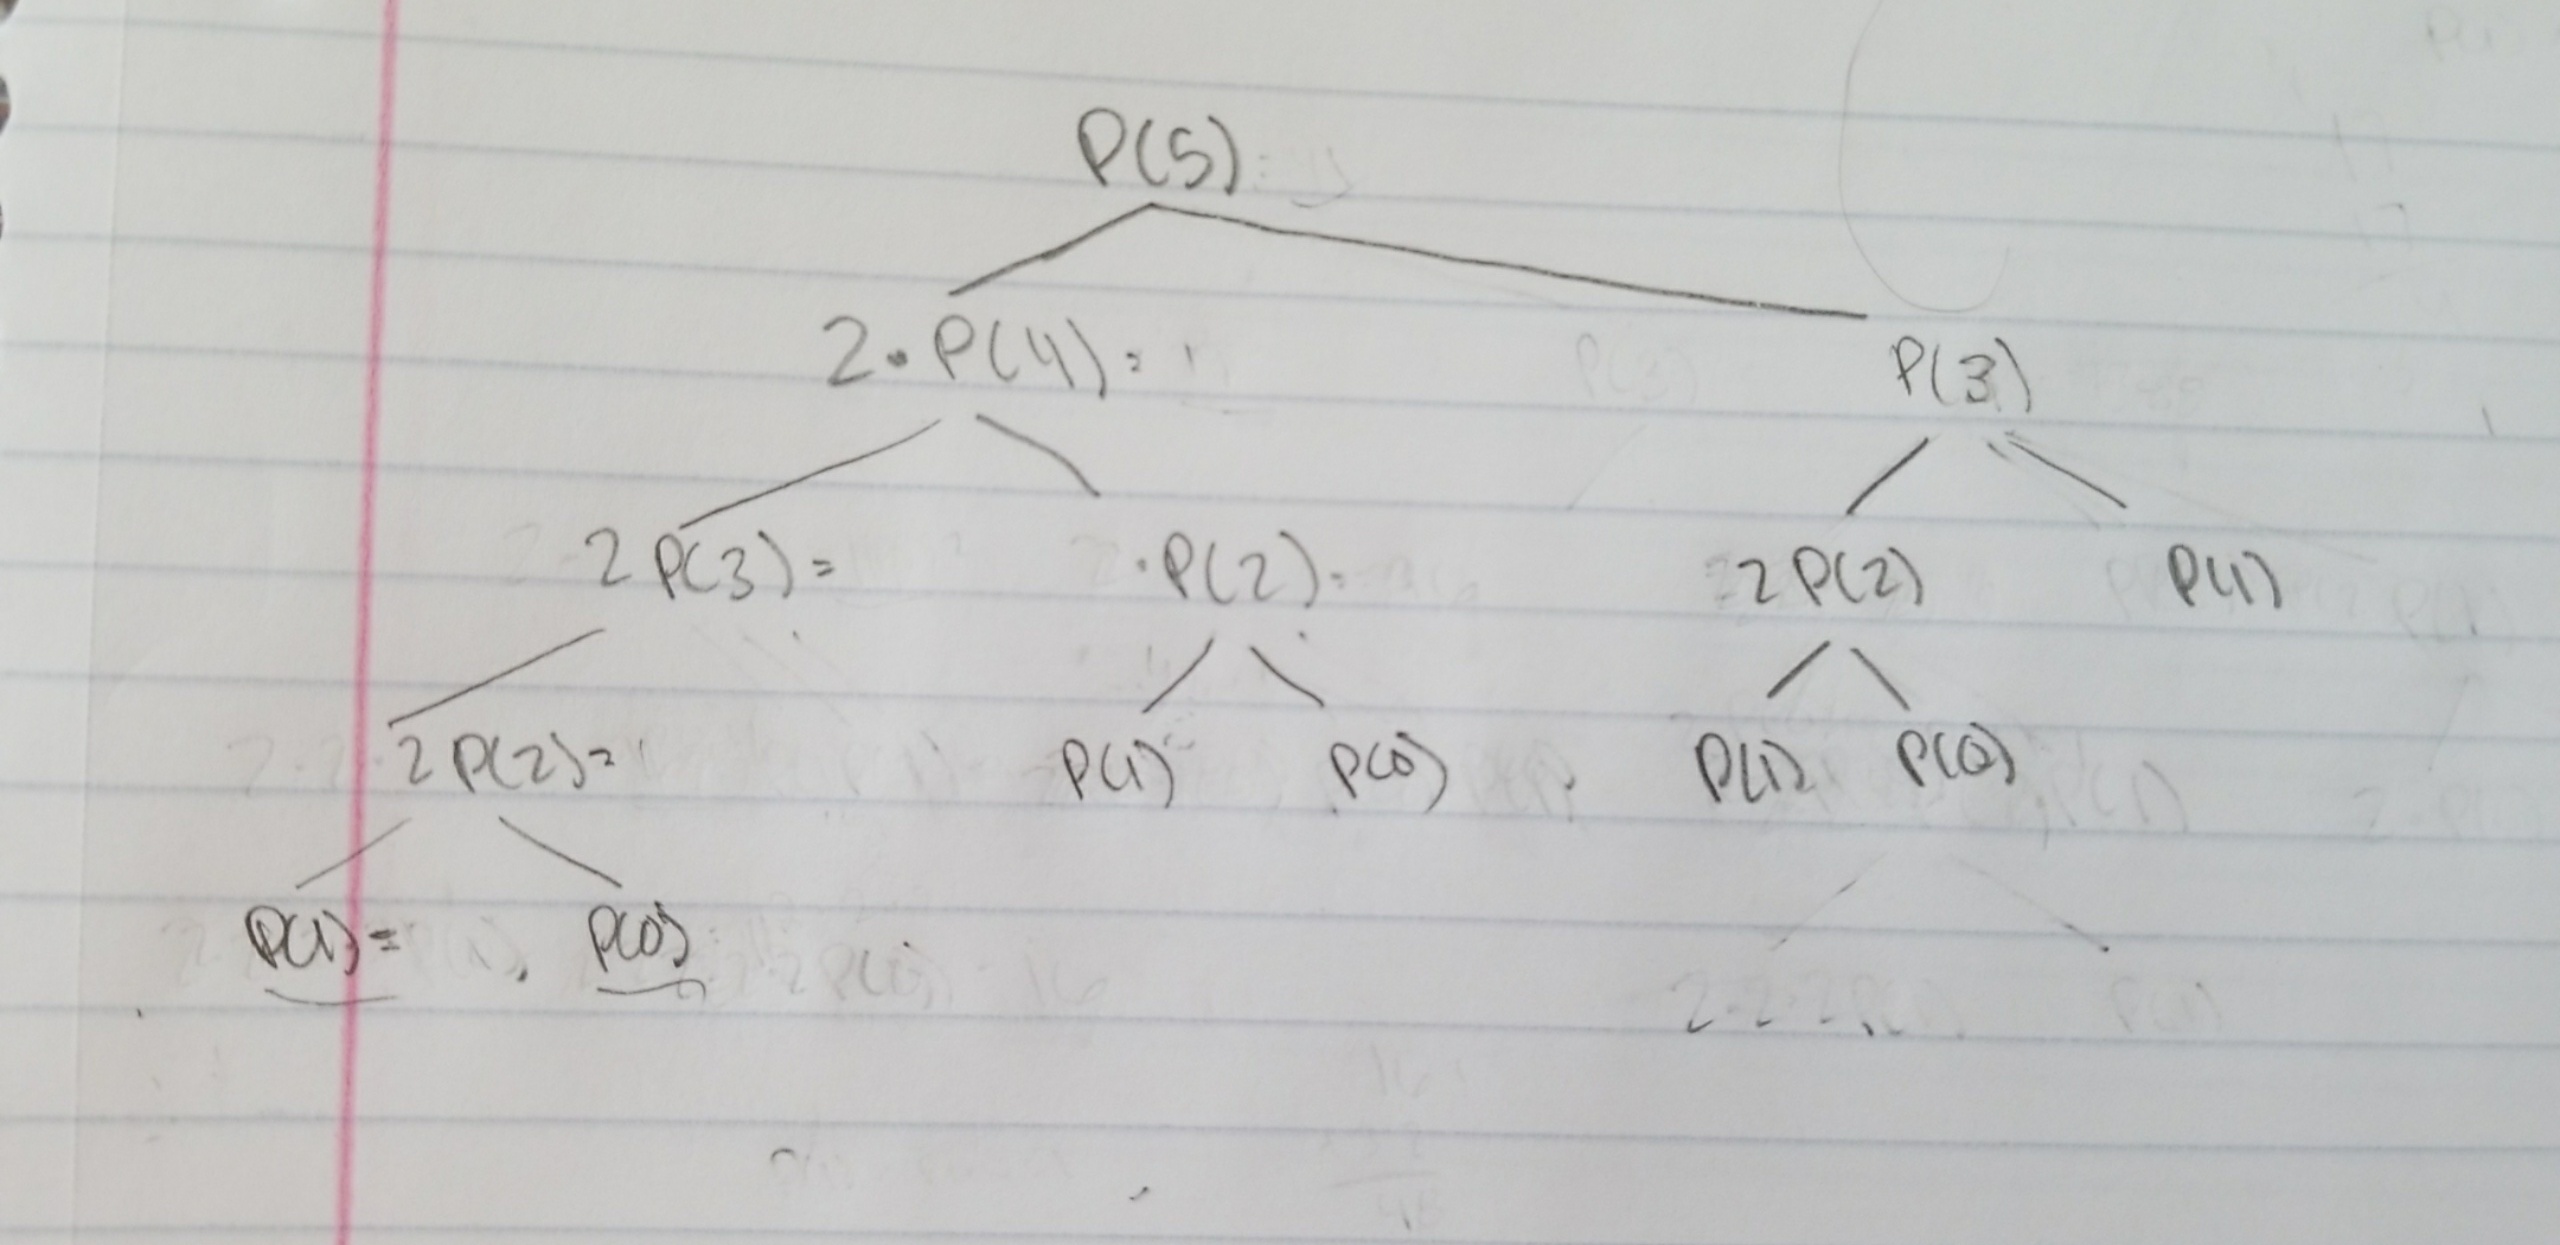 P(5)
2·P(4)=
P(3)
2 P(3)=
·P(2)=
2P(2)
P(1)
2 P(2)=
P(1)
P(0)
P(1)
P(0)
P(1)=
P(0)